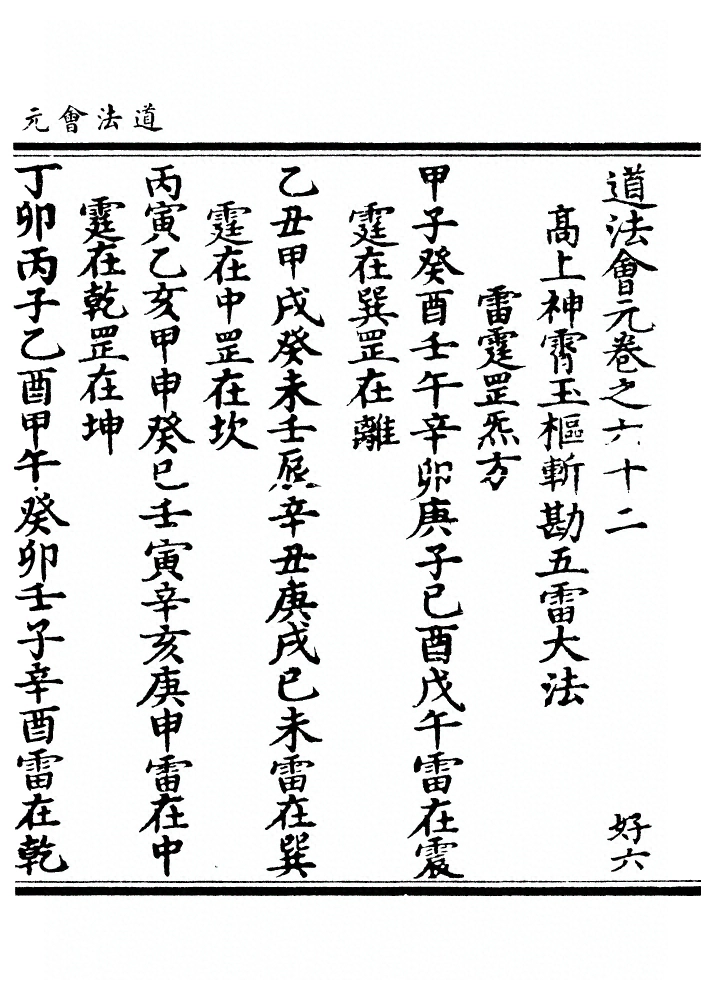 道法會元
道法會元卷之六十二 好六
高上神霄玉樞斬勘五雷大法
雷霆罡炁方
甲子癸酉壬午辛卯庚子己酉戊午雷在震
霆在巽罡在離
乙丑甲戌癸未壬辰辛丑庚戌己未雷在巽
霆在中罡在坎
丙寅乙亥甲申癸巳壬寅辛亥庚申雷在中
霆在乾罡在坤
丁卯丙子乙酉甲午癸卯壬子辛酉雷在乾